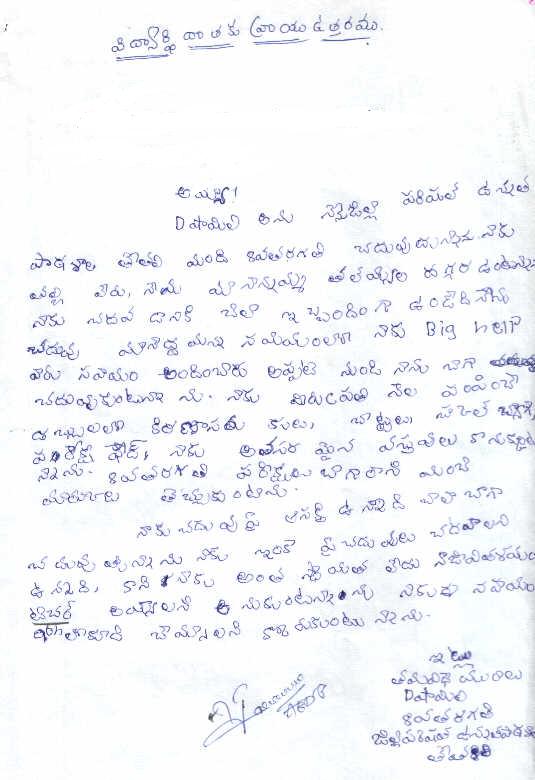 విద్యార్థి దాతకు వ్రాయు ఉత్తరము.
అయ్యా!
D షామిలి అను నేను జిల్లా పరిషత్ ఉన్నత
పాఠశాల తొత నుండి 8వతరగతి చదువుచున్నాను. నాకు
తల్లి లేరు, నేను మా నాన్నమ్మ తాతయ్యల దగ్గర ఉంటున్నా
నాకు చదవడానికి చాలా ఇబ్బందిగా ఉండేది నేను
చదువు మానేద్దామన్న సమయంలో నాకు Big help
వారు సహాయం అందించారు అప్పటి నుండి నేను బాగా
చదువుకుంటున్నాను. నాకు మీరు ప్రతి నెల పంపించే
డబ్బులలో కిరాణాసరుకులు, బట్టలు,
నాకు అవసరమైన వస్తువులు కొనుక్కుంటు
న్నాను. 8వతరగతి పరీక్షలు బాగా రాసి మంచి
మార్కులు తెచ్చుకుంటాను.
నాకు చదువు పై ఆసక్తి ఉన్నది చాలా బాగా
చదువుతున్నాను నాకు ఇంకా పై చదువులు చదవాలని
ఉన్నది, కాని నాకు అంత స్థోమత లేదు నా జీవితాశయం
టీచర్ అవ్వాలని అనుకుంటున్నాను నాకు మీ సహాయం
10th లాకూడా చేయాలని కోరుకుంటున్నాను.
ఇట్లు
తమ విధేయురాలు
D షామిలి
8వతరగతి
జిల్లాపరిషత్ ఉన్నతపాఠశాల